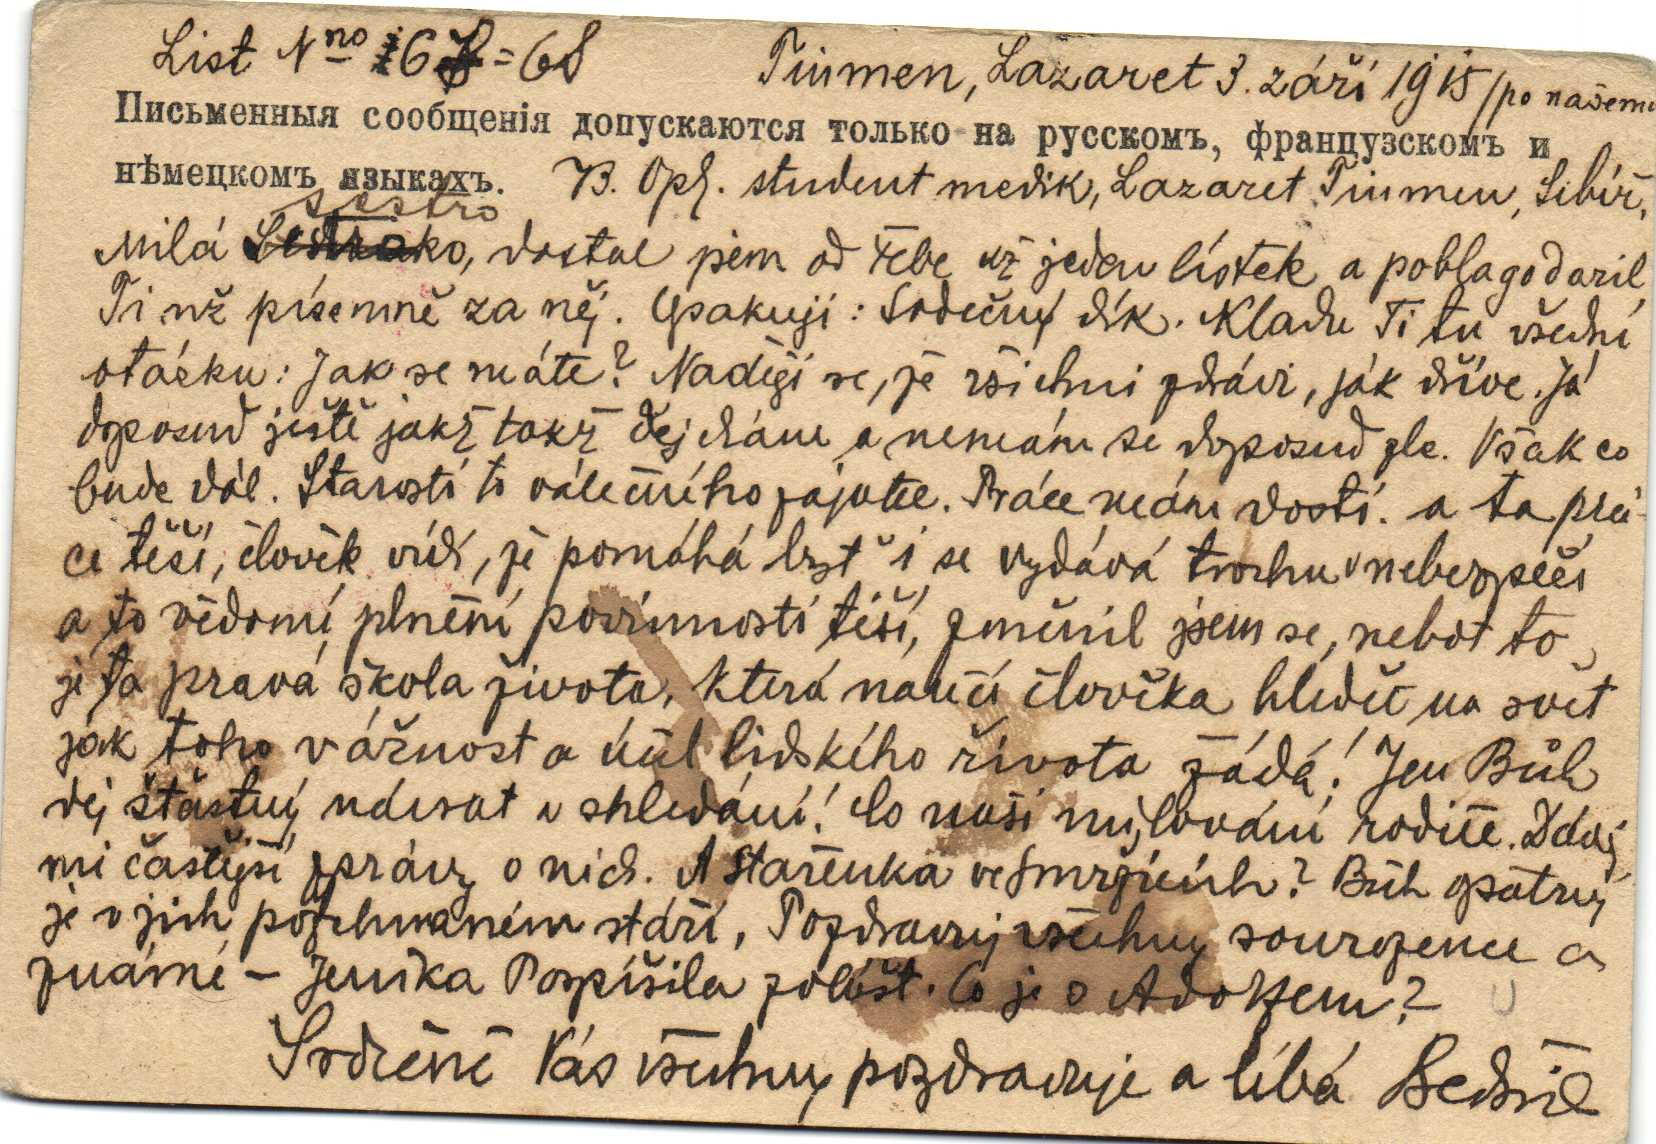 List Nno 67 = 68 Tiumen, Lazaret 3. září 1915 /po našemu
Письменныя сообщенія допускаются только на русскомъ, французскомъ и
нѣмецкомъ языкахъ. B. Opl. student medik, Lazaret Tiumen, Sibiř.
sestro
Milá, dostal jsem od Tebe už jeden lístek a poblagodaril
Ti už písemně za něj. Opakuji: Srdečný dík. Kladu Ti tu všední
otázku: Jak se máte? Naději se, že všichni zdrávi, jak dříve. Já
doposud ještě jakž takž a nemám se doposud zle. Však co
bude dál. Starosti to válečného zajatce. Práce mám dosti. a ta prá-
ce těší, člověk vidí, že pomáhá byt' i se vydává trochu v nebezpečí
a to vědomí plnění povinnosti těší, změnil jsem se, nebot to
je ta pravá škola života, která naučí člověka hleděti na svět
jak toho vážnost a účel lidského života žádá! Jen Bůh
dej šťastný návrat a shledání! Co naši milování rodiče. Dávej
mi častější zprávy o nich. A stařenka ve Smržicích? Bůh opatruj
je v jich požehnaném stáří, Pozdravuj všechny sourozence a
známé – Jeníka Pospíšila zvlášt. Co je s Adolfem?
Srdečně Vás všechny pozdravuje a líbá Bedřich